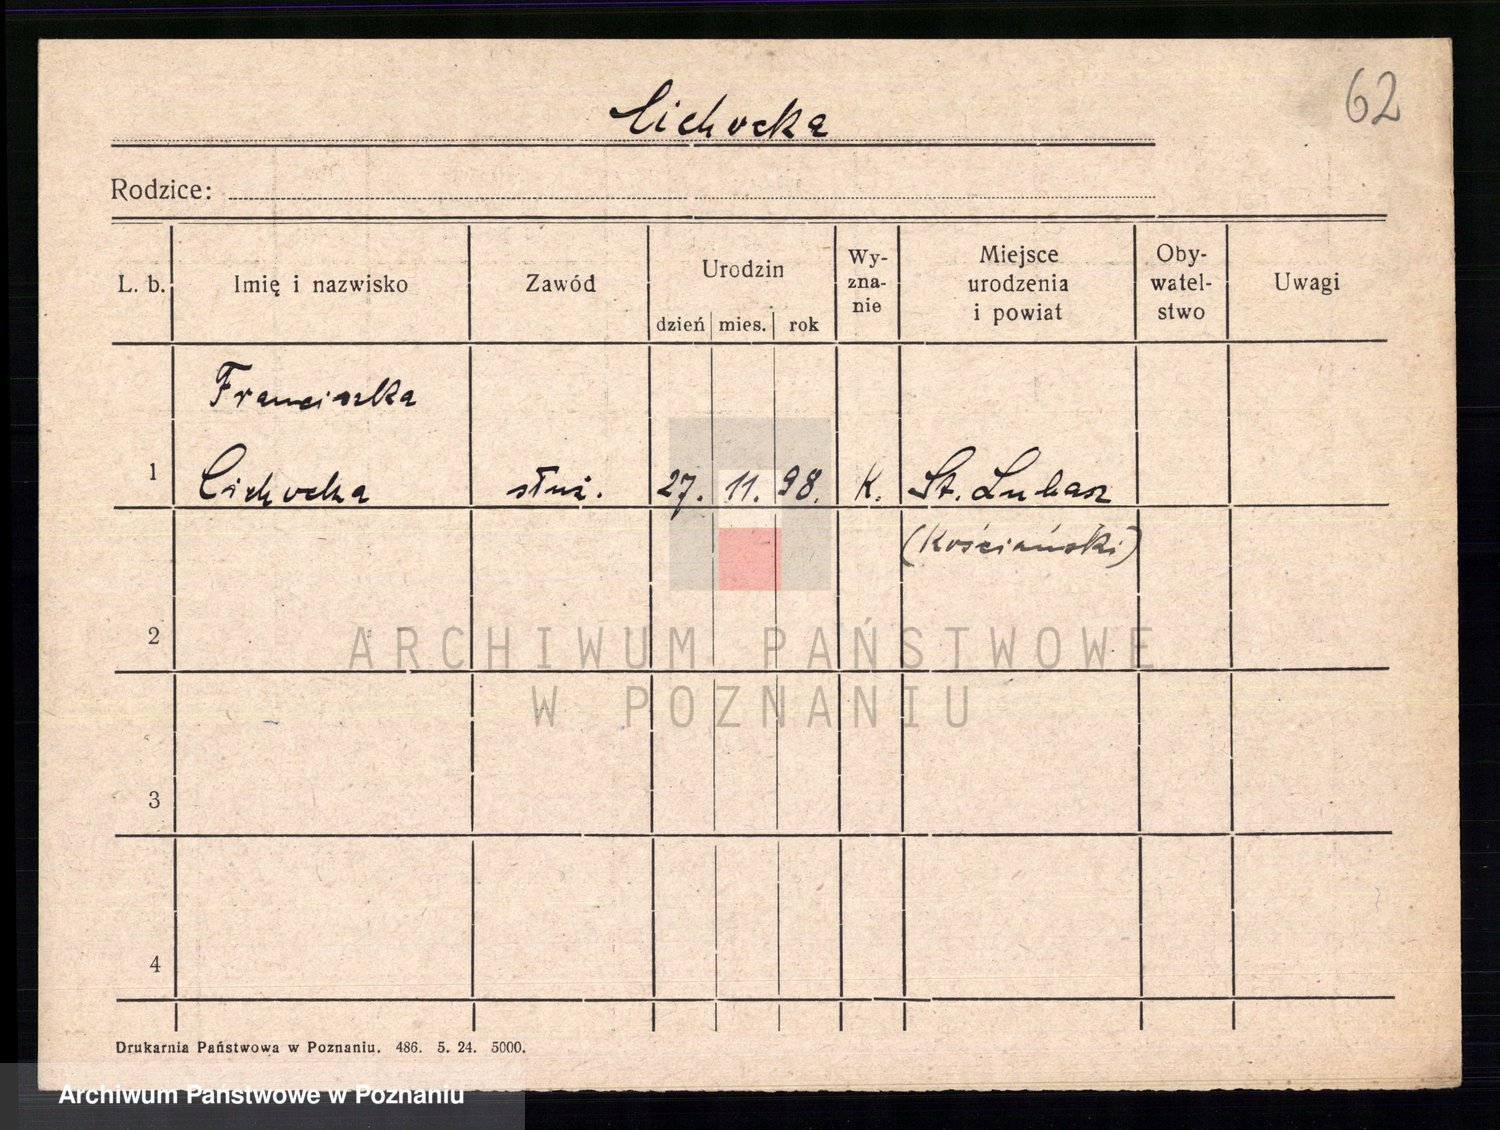 62
Cichocka
Rodzice:
L. b.
Imię i nazwisko
Zawód
Urodzin
dzień mies. rok
Wy-
zna-
nie
Miejsce
urodzenia
i powiat
Oby-
watel-
stwo
Uwagi
Franciszka
1 Cichocka służ. 27. 11. 98. K. St. Łukasz
(Kościański)
2
ARCHIWUM PAŃSTWOWE
W POZNANIU
3
4
Drukarnia Państwowa w Poznaniu. 486. 5. 24. 5000.
Archiwum Państwowe w Poznaniu